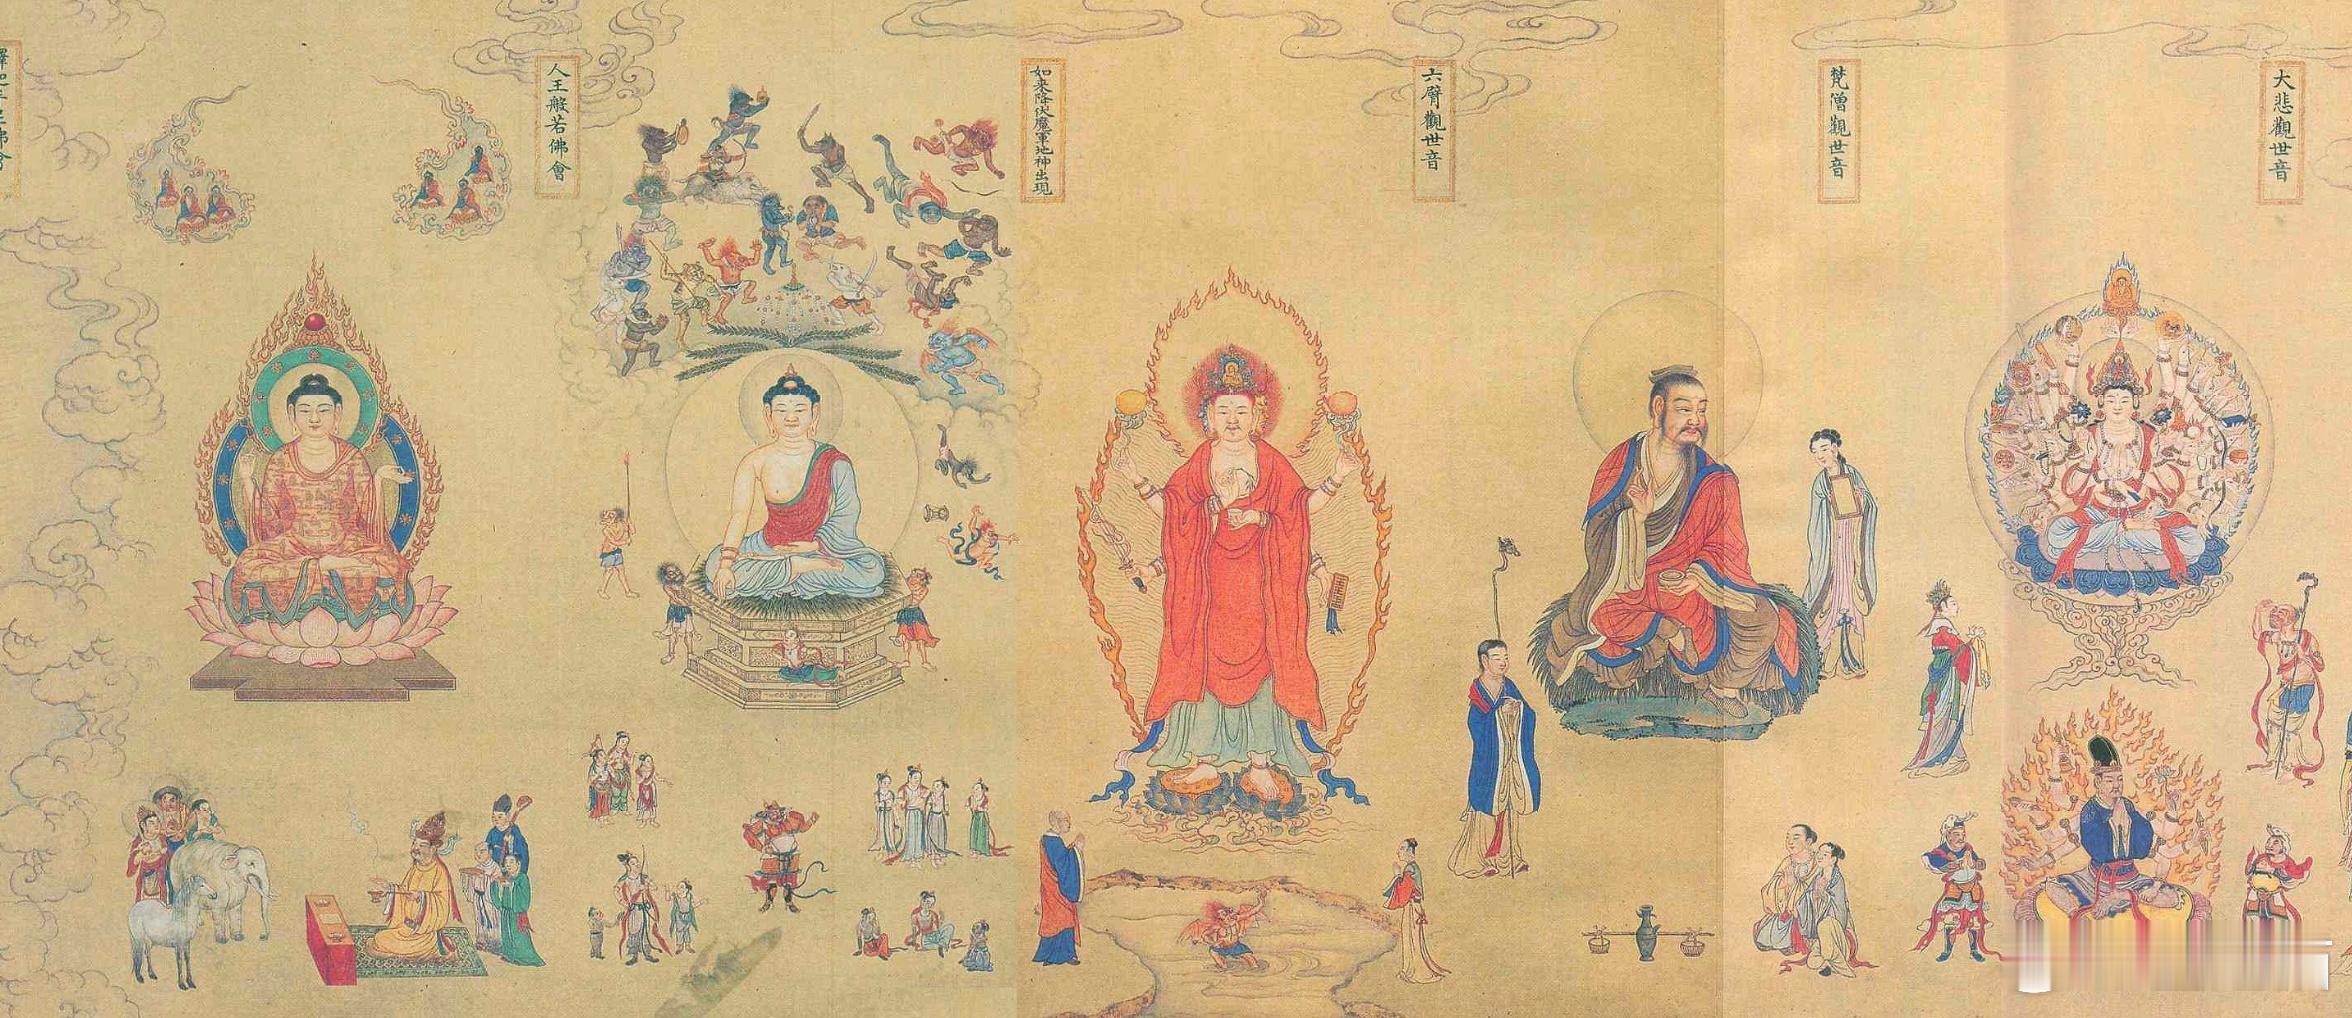 大悲觀世音
梵僧觀世音
六臂觀世音
如来降伏魔軍地神出現
人王般若佛會